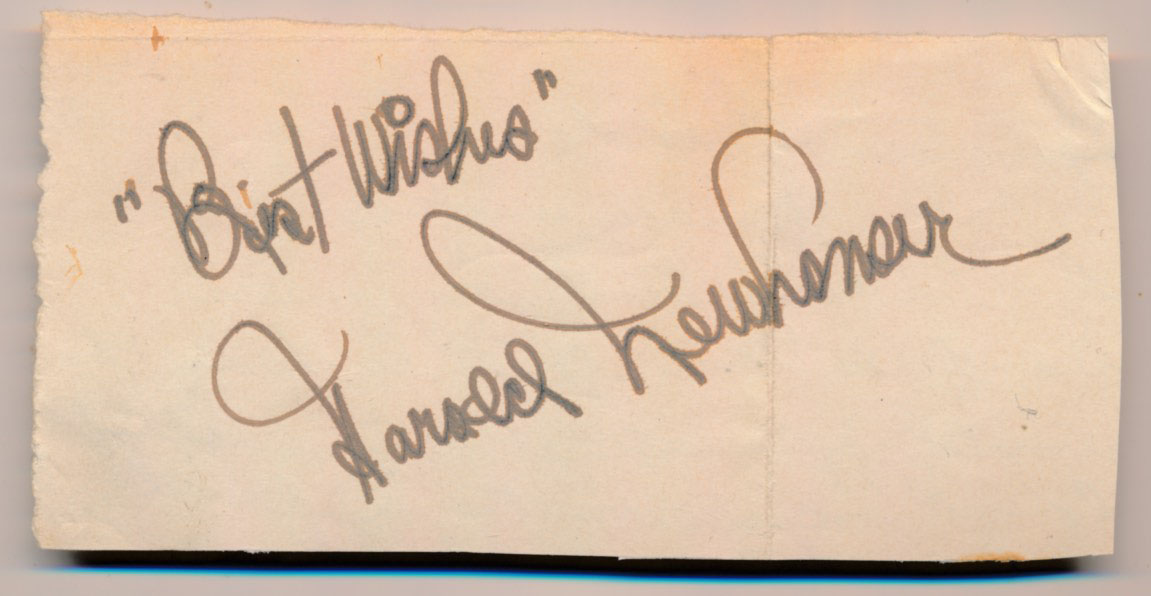 "Best Wishes"
Harold Newhouser